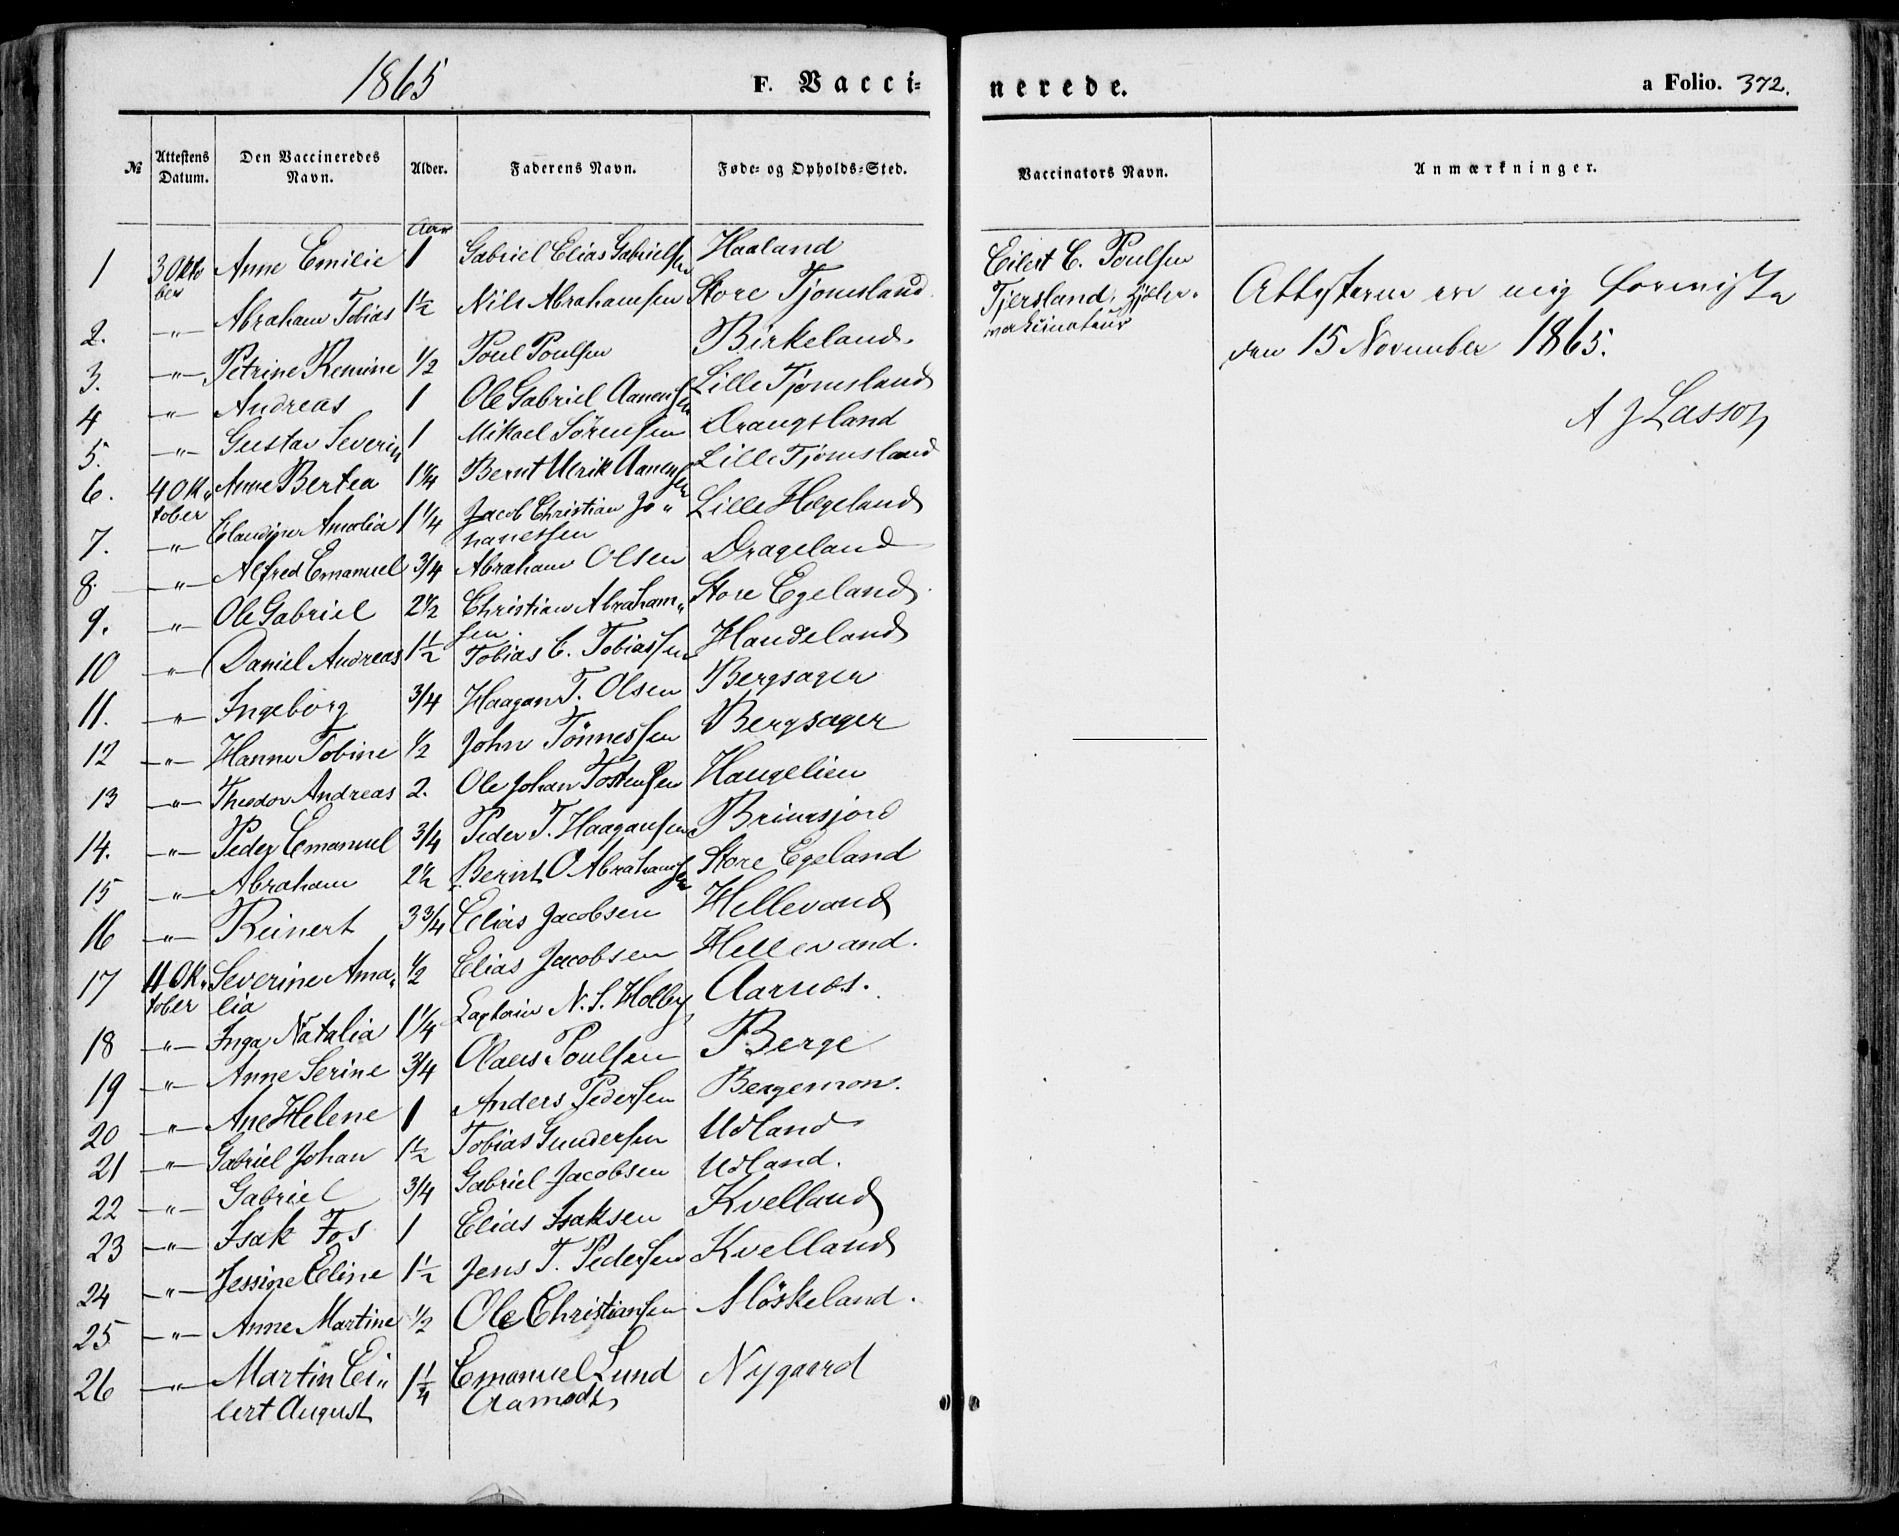 1865
F. Vacci-
nerede.
a Folio. 372.
№ Attestens Datum. Den Vaccineredes Navn. Alder. Faderens Navn. Føde- og Opholds-Sted. Vaccinators Navn. Anmærkninger.
Aar
1 3 Okto Anne Emilie 1 Gabriel Elias Gabrielsen Haaland
ber
2. -"- Abraham Tobias 1½ Nils Abrahamsen Store Tjomsland
3. -"- Petrine Remine ½ Poul Poulsen Birkeland
4 -"- Andreas 1 Ole Gabriel Aanensen Lille Tjomsland
5. -"- Gustav Severin 1 Mikael Sörensen Drangsland
6. 4 Ok- Anne Bertea 1¼ Bernt Ulrik Aanensen Lille Tjomsland
tober
7. -"- Claudine Amalia 1¼ Jacob Christian Jo- Lille Hægeland
hanessen
8. -"- Alfred Emanuel ¾ Abraham Olsen Drageland
9. -"- Ole Gabriel 2½ Christian Abraham- Store Egeland
sen.
10 -"- Daniel Andreas 1½ Tobias C. Tobiassen Haudeland
11. -"- Ingeborg ¾ Haagan T. Olsen Bergsager
12 -"- Hanne Tobine ½ John Tönnessen Bergsager
13 -"- Theodor Andreas 2. Ole Johan Tostensen Haugelien
14. -"- Peder Emanuel ¾ Peder T. Haagansen Brimsjord
15 -"- Abraham 2½ Bernt O Abrahamsen Store Egeland
16 -"- Reinert 3¾ Elias Jacobsen Hellevand
17 11 Ok- Severine Ama- ½ Elias Jacobsen Hellevand.
tober lia
18 -"- Inga Natalia 1¼ Captain N. S. Holby Aarnes.
19 -"- Anne Serine ¾ Claus Poulsen Berge
20 -"- Ane Helene 1 Anders Pedersen Bergemon.
21 -"- Gabriel Johan 1½ Tobias Gundersen Udland
22 -"- Gabriel ¾ Gabriel Jacobsen Udland.
23 -"- Isak Fos 1 Elias Isaksen Kvelland
24 -"- Jessine Eline 1½ Jens T. Pedersen Kvelland
25 -"- Anne Martine ½ Ole Christiansen Möskeland.
26 -"- Martin Ei- 1¼ Emanuel Lund Nygaard
lert August Aamodt
Eilert C. Poulsen
Tjersland, Hjælpe-
vakcinateur
Attesterne ere mig foreviste
den 15 November 1865.
A J Lassoy